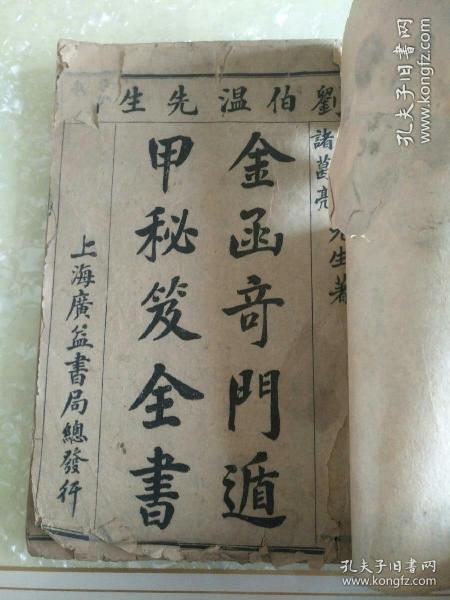 劉伯温先生
諸葛亮先生著
金函奇門遁
甲秘笈全書
上海廣益書局總發行
孔夫子旧书网
www.kongfz.com
孔夫子旧书网
www.kongfz.com